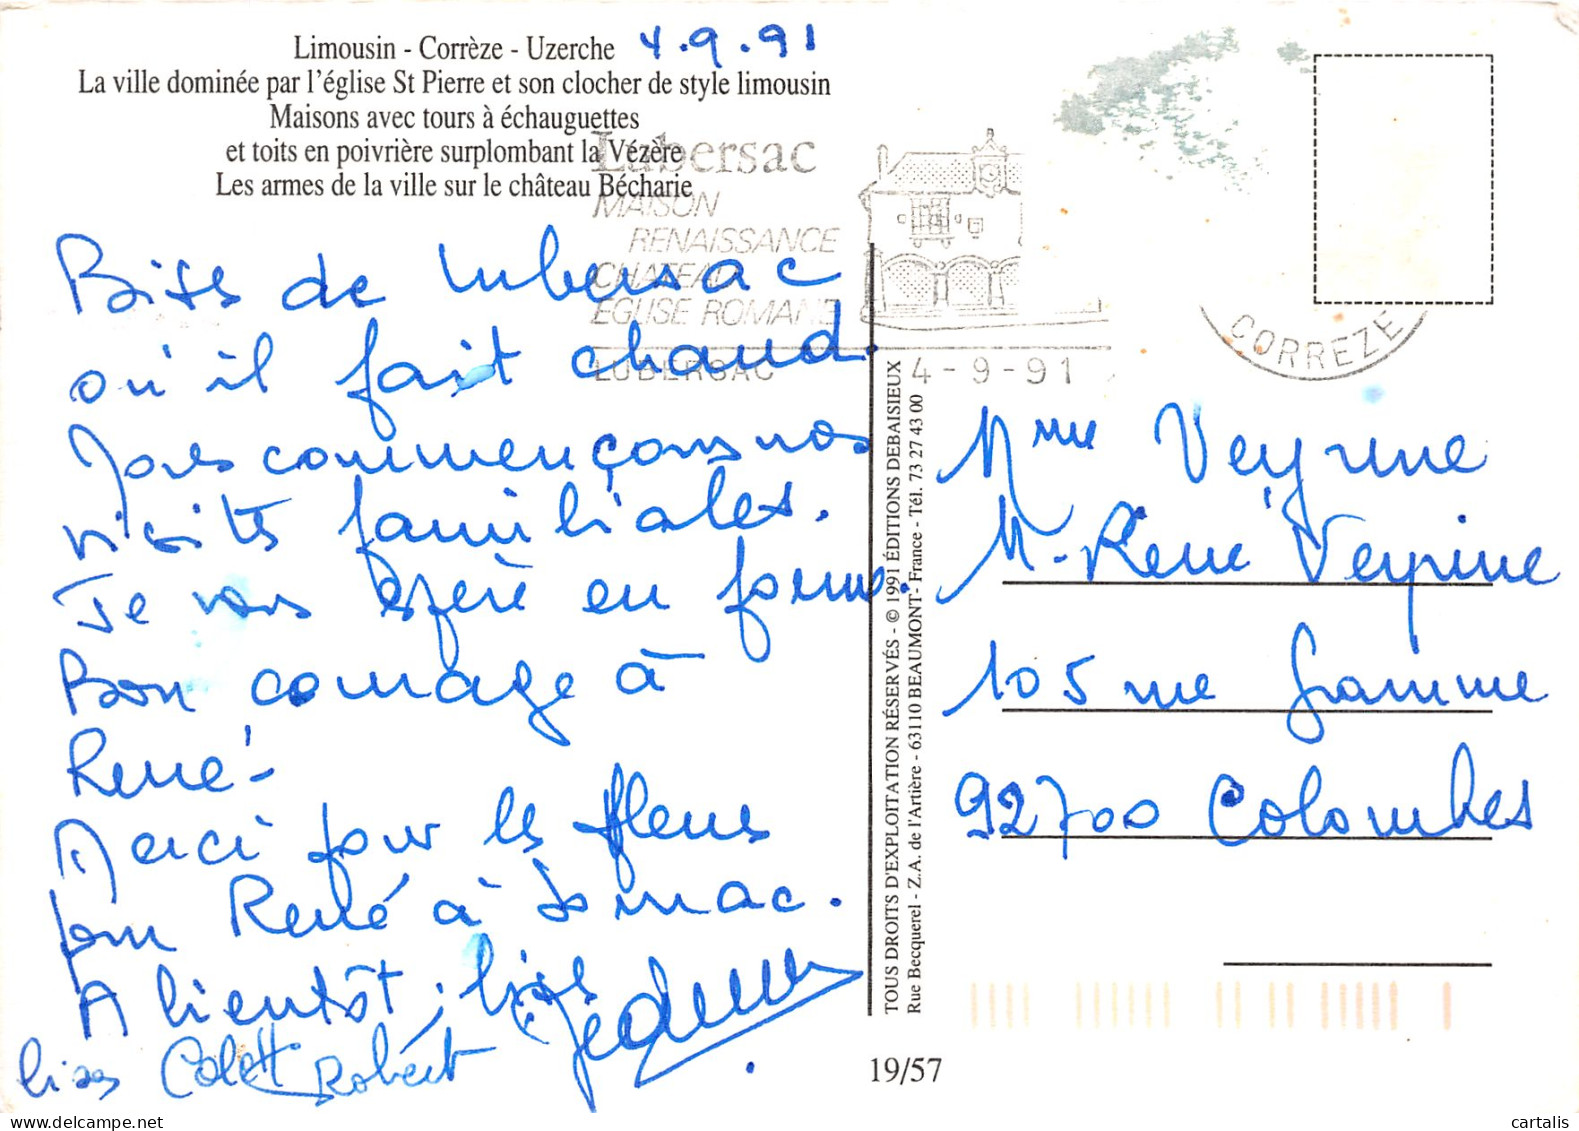 Limousin - Corrèze - Uzerche 4.9.91
La ville dominée par l'église St Pierre et son clocher de style limousin
Maisons avec tours à échauguettes
et toits en poivrière surplombant la Vézère
Les armes de la ville sur le château Bécharie
Lubersac
MAISON
RENAISSANCE
CHATEAU
EGLISE ROMANE
LUBERSAC
4-9-91
CORREZE
Bises de Lubersac
où il fait chaud.
Nous commençons nos
visites familiales.
Je vous espère en forme.
Bon courage à
René -
Merci pour les fleurs
pour René à
A bientôt, bises
bises Colette Robert
TOUS DROITS D'EXPLOITATION RÉSERVÉS - © 1991 ÉDITIONS DEBAISIEUX
Rue Becquerel - Z.A. de l'Artière - 63110 BEAUMONT - France - Tél. 73 27 43 00
Mme Veyrine
M. René Veyrine
105 rue Gramme
92700 Colombes
19/57
cartalis.com